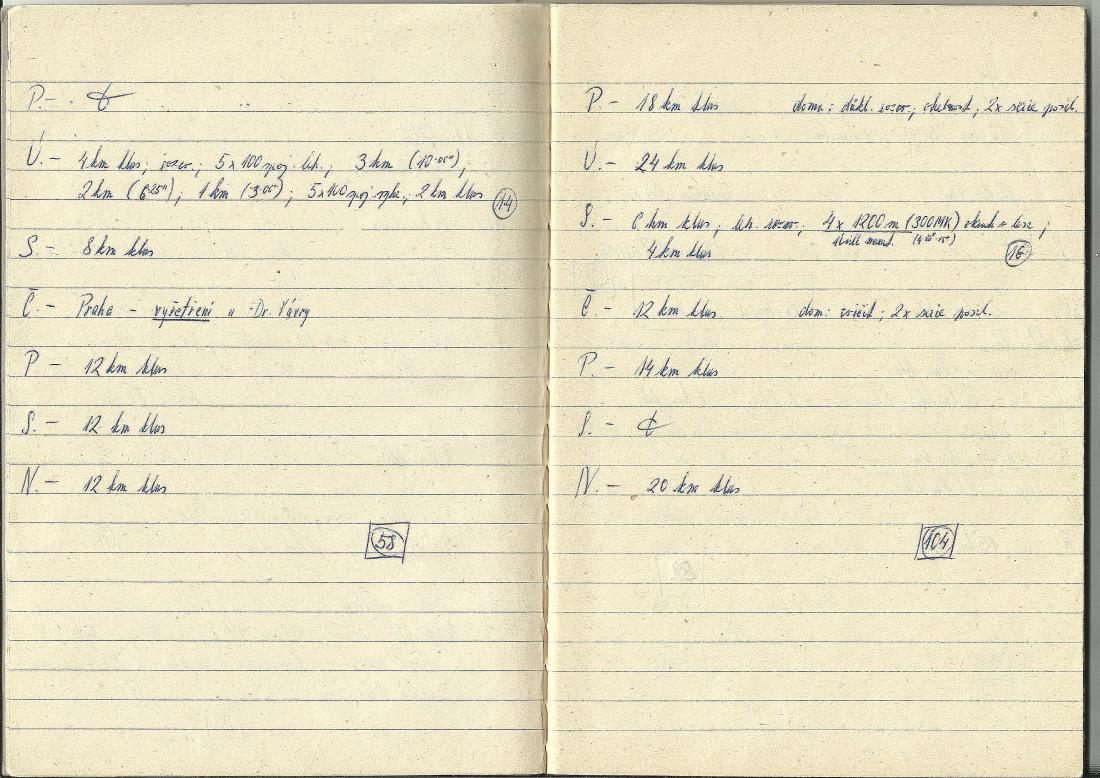 P. -
Ú. - 4 km klus; rozcv.; 5 x 100 spoj. leh.; 3 km (10·05");
2 km (6·25"); 1 km (3·05"); 5x100 spoj rychl.; 2 km klus 14
S. - 8 km klus
Č. - Praha - vyšetření u Dr. Vávry
P - 12 km klus
S. - 12 km klus
N. - 12 km klus
58
P. - 18 km klus doma: důkl. rozcv.; obratnost; 2x serie posil.
Ú. - 24 km klus
S. - 6 km klus; leh. rozcv.; 4 x 1200 m (300 MK) okruh v lese;
4 km klus 16
Č. - 12 km klus dom: cvičit; 2x serie posil.
P. - 14 km klus
S. -
N. - 20 km klus
104